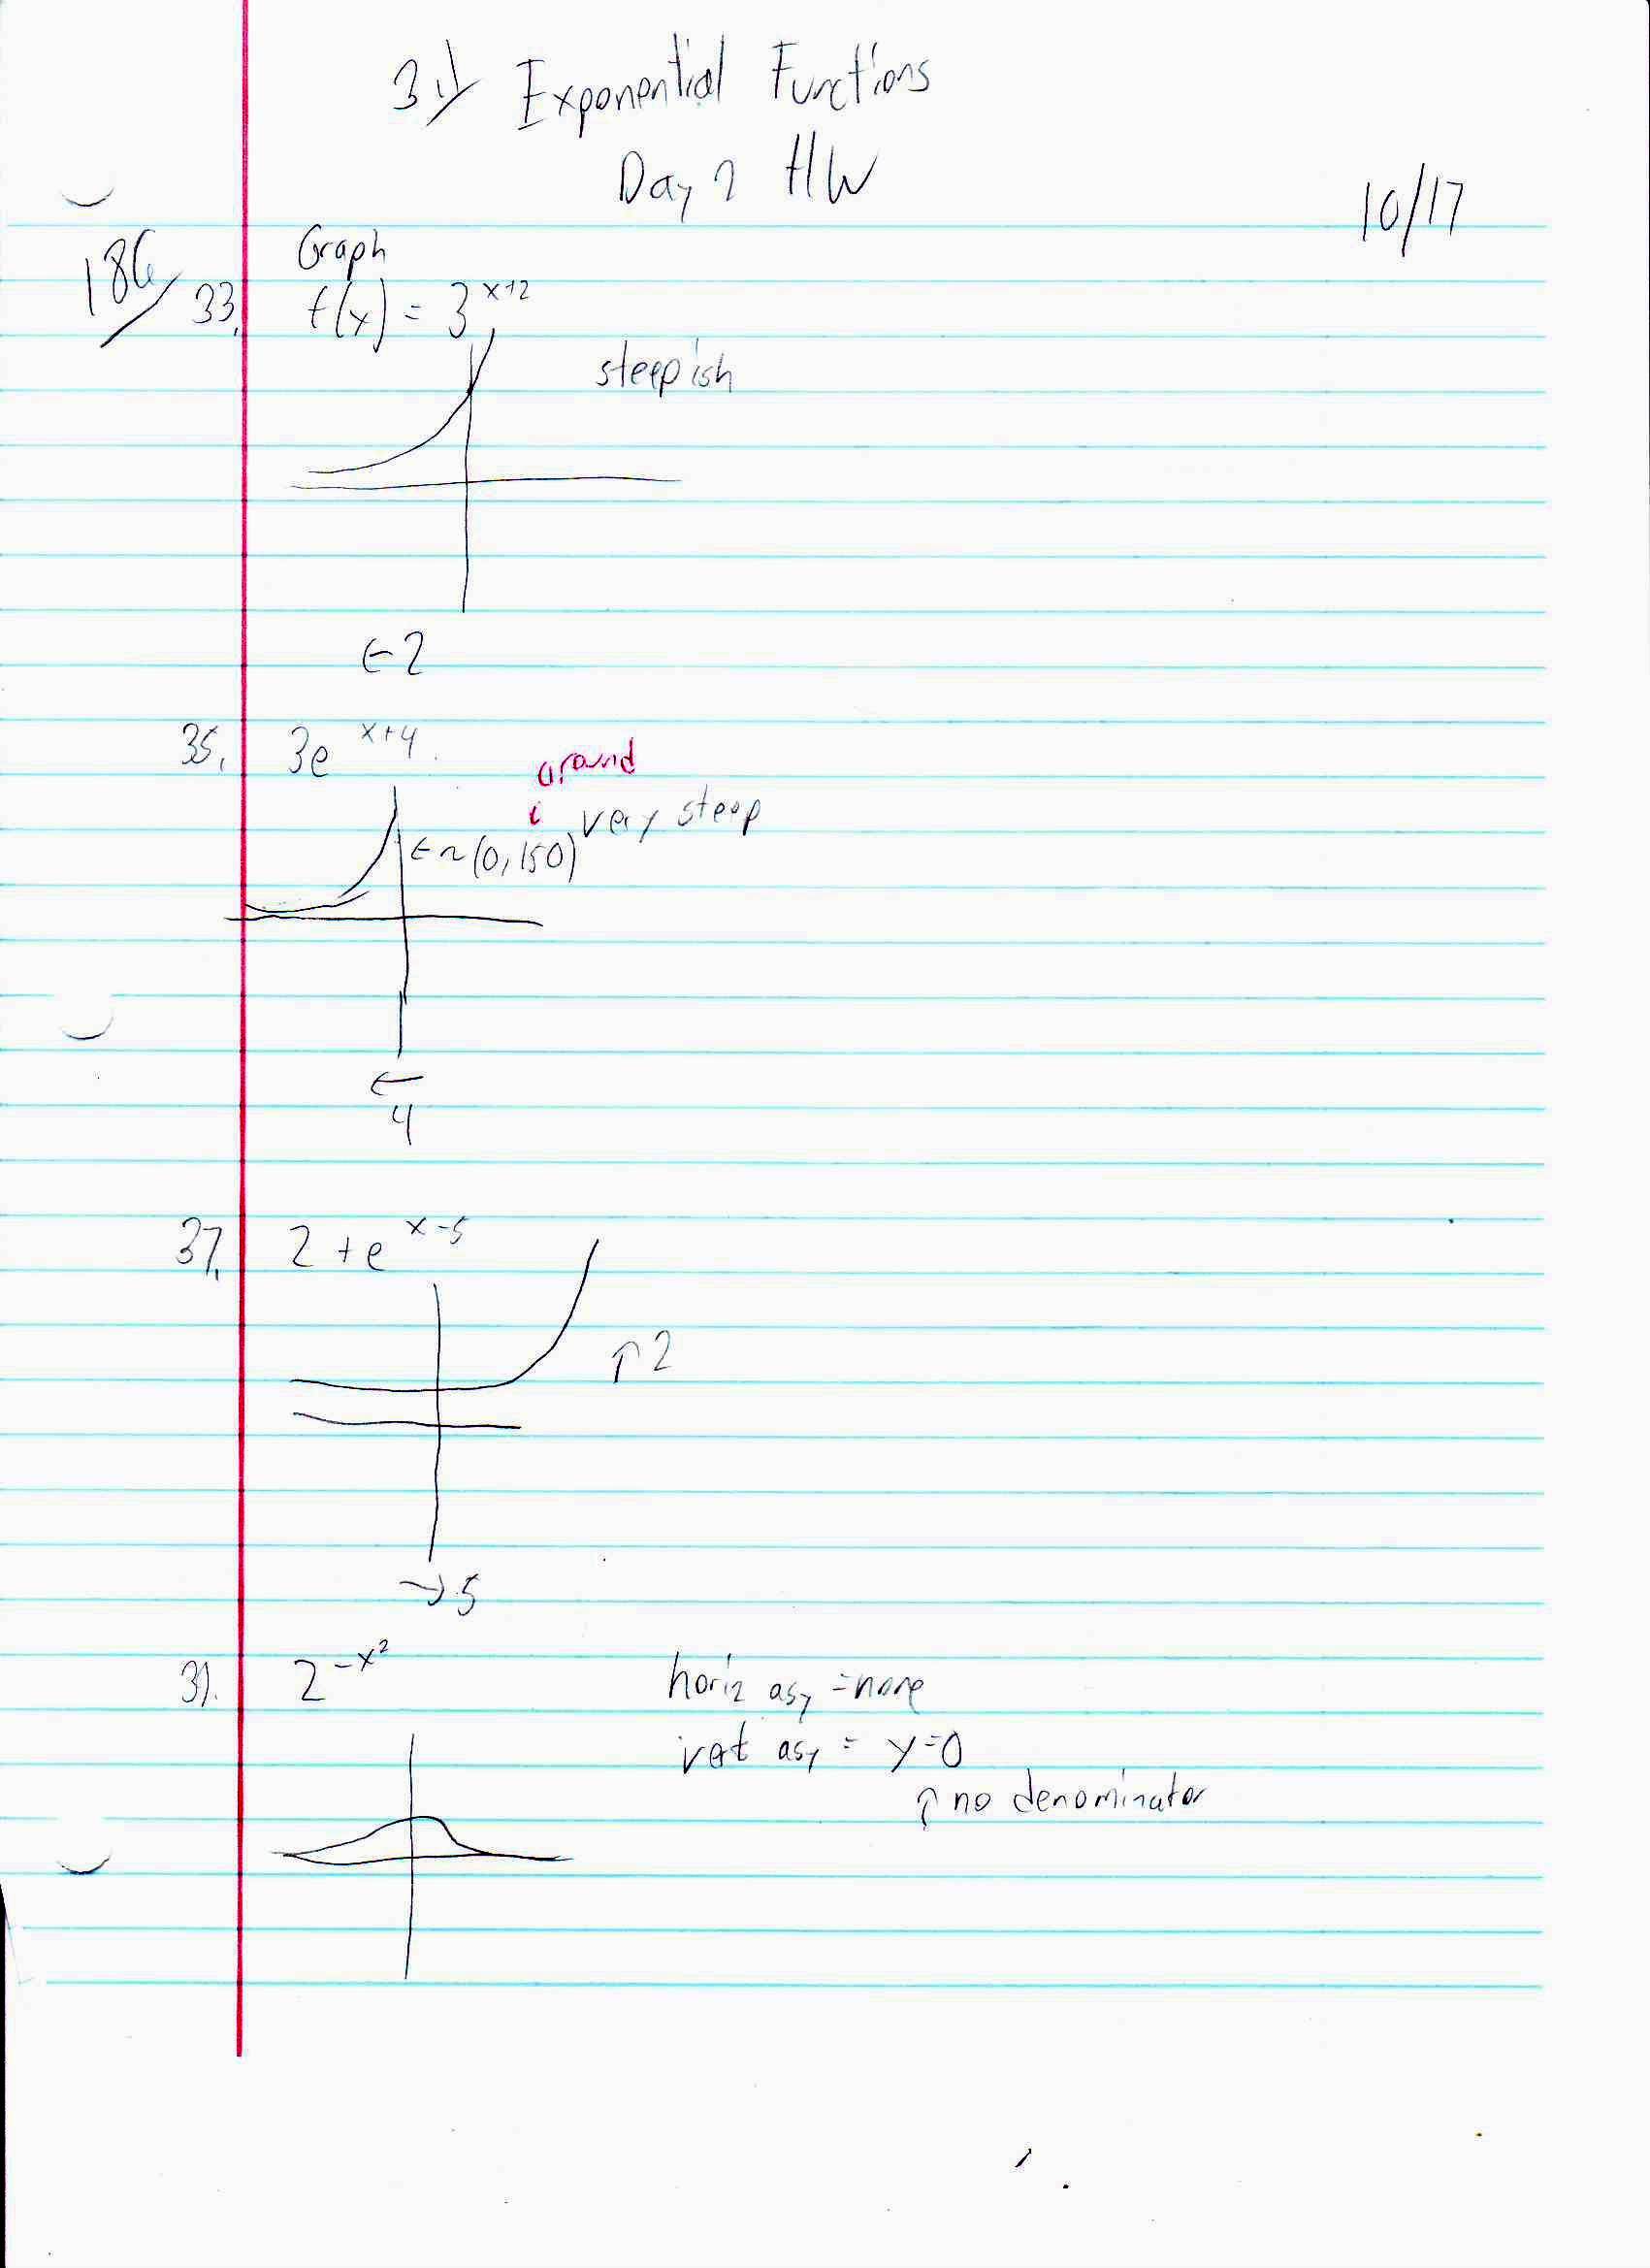 3.1/ Exponential Functions
Day 2 HW
10/17
186/
Graph
33. f(x) = 3^x+2
steepish
← 2
35. 3e^x+4
around
← ~(0, 150) very steep
←
4
37. 2 + e^x-5
↑ 2
→ 5
39. 2^-x²
horiz asy = none
vert asy = y=0
↑ no denominator